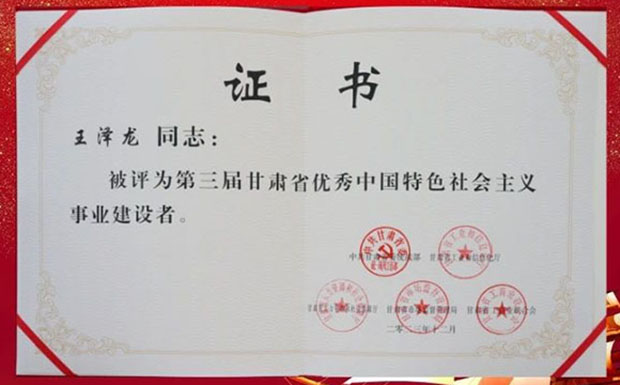 证书
王泽龙 同志：
被评为第三届甘肃省优秀中国特色社会主义
事业建设者。
中共甘肃省委统战部 甘肃省工业和信息化厅
甘肃省市场监督管理局 甘肃省工商业联合会
二〇二三年十二月